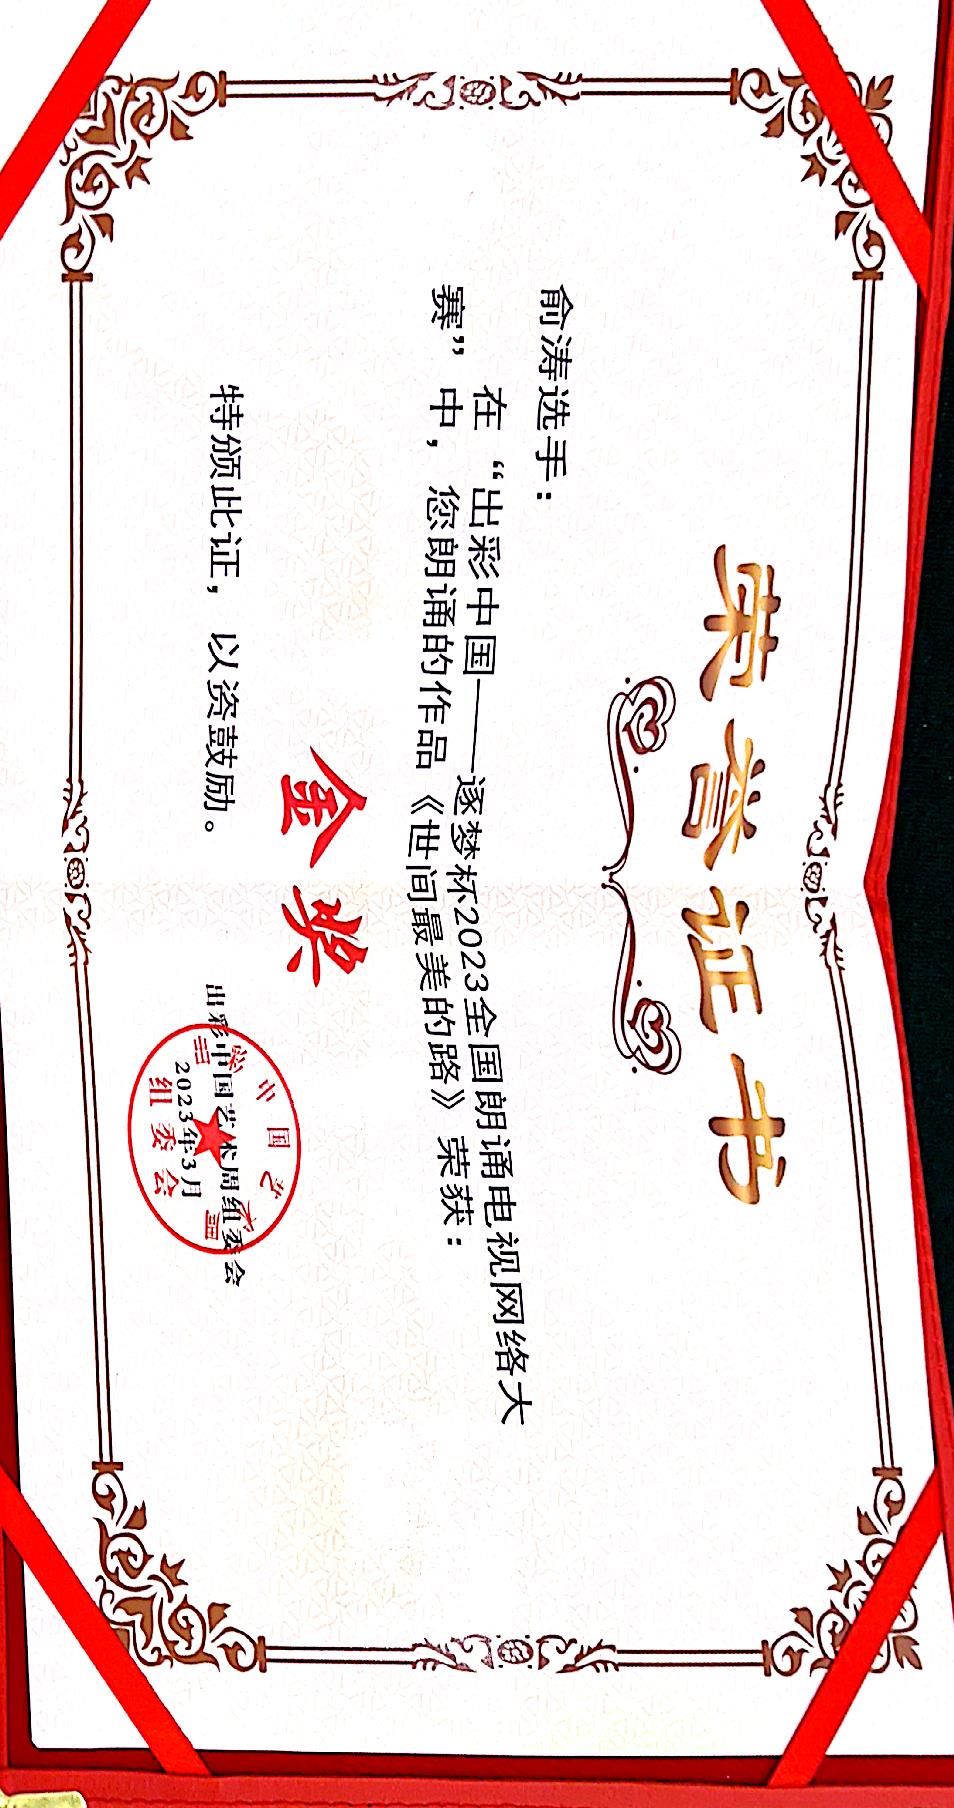 荣誉证书
俞涛选手：
在“出彩中国——逐梦杯2023全国朗诵电视网络大
赛”中，您朗诵的作品《世间最美的路》荣获：
金奖
特颁此证，以资鼓励。
出彩中国艺术周组委会
2023年3月
组委会